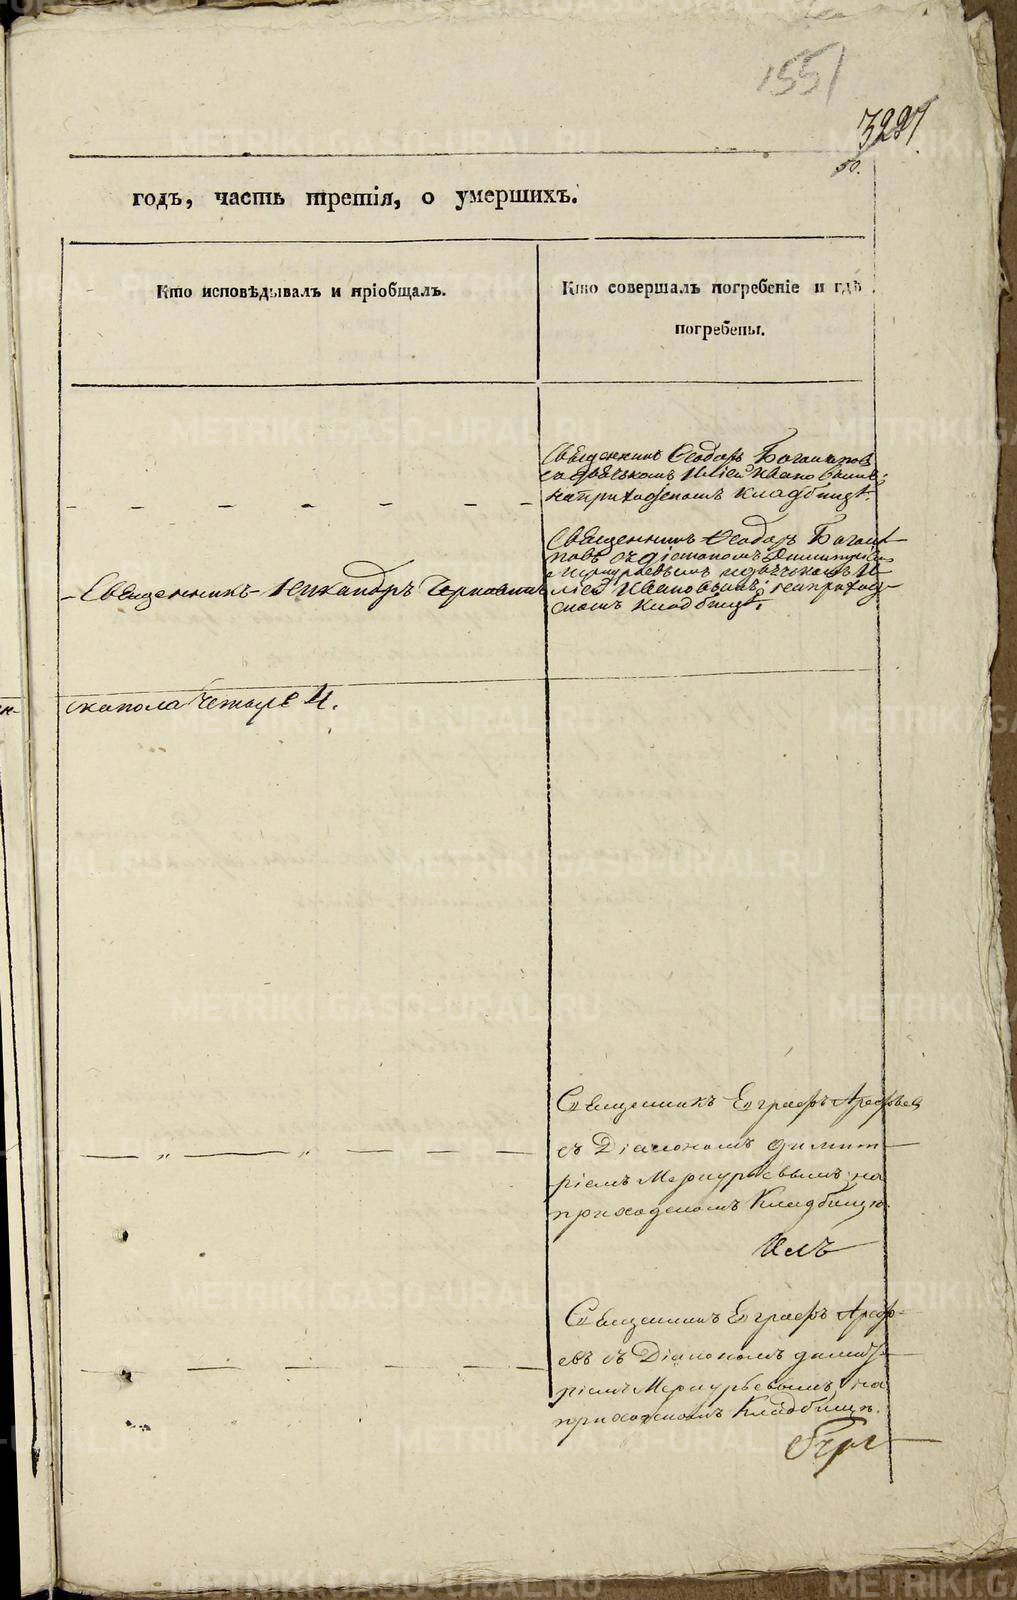 1551
50.
годъ, часть третія, о умершихъ.
Кто исповѣдывалъ и пріобщалъ.
Кто совершалъ погребеніе и гдѣ
погребены.
Священникъ Ѳеодоръ
съ дьячькомъ Иліей Ивановымъ;
на приходскомъ кладбищѣ.
Священникъ Ѳеодоръ
съ діакономъ Димитріемъ
Меркурьевымъ и дьячькомъ И-
ліей Ивановымъ; на приход-
скомъ кладбищѣ;
Священникъ Никандръ
скаго пола четыре 4.
Священникъ Евграфъ Арефьевъ
съ Діакономъ Димит-
ріемъ Меркурьевымъ на
приходскомъ Кладбищѣ.
Священникъ Евграфъ Ареф-
евъ съ Діакономъ Димит-
ріемъ Меркурьевымъ на
приходскомъ Кладбищѣ.
METRIKI.GASO-URAL.RU